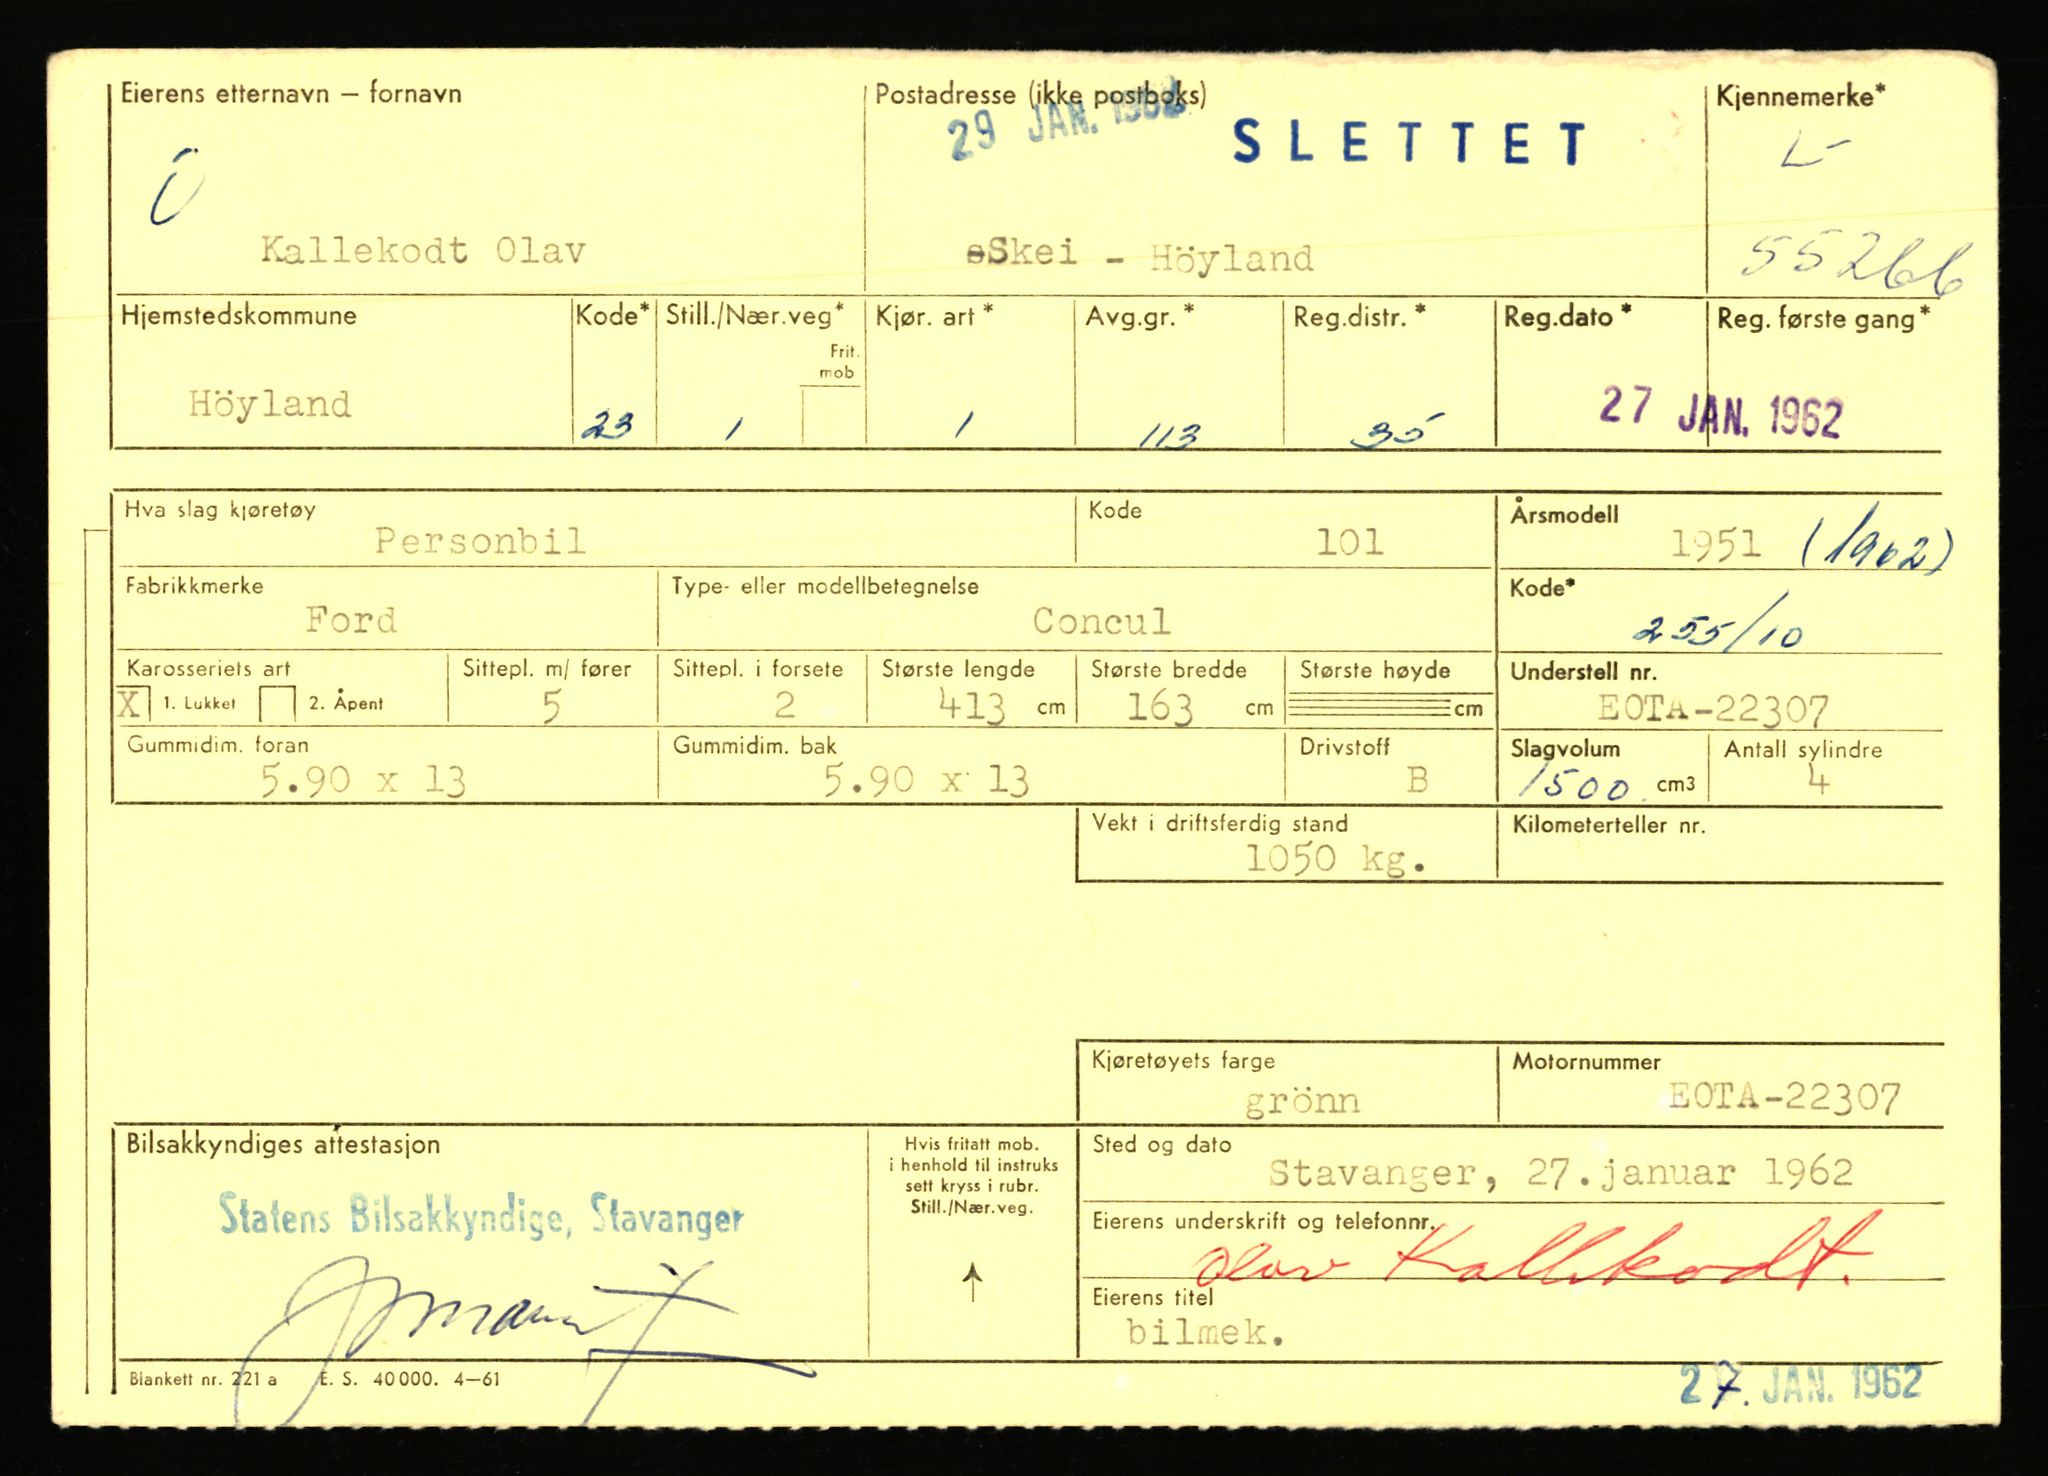 Eierens etternavn – fornavn
Postadresse (ikke postboks)
Kjennemerke*
29 JAN. 1962
SLETTET
L
Kallekodt Olav
Skei - Höyland
55266
Hjemstedskommune
Kode*
Still./Nær.veg*
Frit. mob
Kjør. art *
Avg.gr. *
Reg.distr. *
Reg.dato *
Reg. første gang*
Höyland
23
1
1
113
35
27 JAN. 1962
Hva slag kjøretøy
Personbil
Kode
101
Årsmodell
1951 (1962)
Fabrikkmerke
Ford
Type- eller modellbetegnelse
Concul
Kode*
255/10
Karosseriets art
X 1. Lukket 2. Åpent
Sittepl. m/ fører
5
Sittepl. i forsete
2
Største lengde
413 cm
Største bredde
163 cm
Største høyde
cm
Understell nr.
EOTA-22307
Gummidim. foran
5.90 x 13
Gummidim. bak
5.90 x 13
Drivstoff
B
Slagvolum
1500 cm3
Antall sylindre
4
Vekt i driftsferdig stand
1050 kg.
Kilometerteller nr.
Kjøretøyets farge
grönn
Motornummer
EOTA-22307
Bilsakkyndiges attestasjon
Statens Bilsakkyndige, Stavanger
Hvis fritatt mob.
i henhold til instruks
sett kryss i rubr.
Still./Nær.veg.
Sted og dato
Stavanger, 27.januar 1962
Eierens underskrift og telefonnr.
Olav Kallekodt.
Eierens titel
bilmek.
Blankett nr. 221 a E. S. 40 000. 4–61
27. JAN. 1962